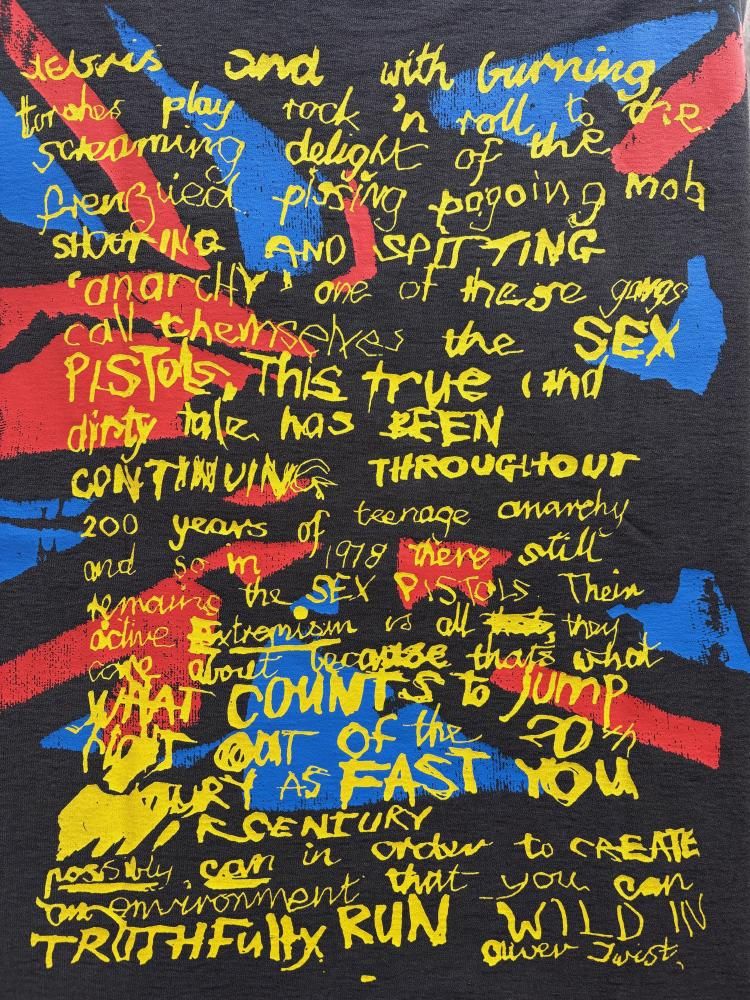 debris and with burning
torches play rock 'n roll to the
screaming delight of the
frenzied pissing pogoing mob
SHOOTING AND SPITTING
'anarchy' one of these gangs
call themselves the SEX
PISTOLS. This true and
dirty tale has BEEN
CONTINUING THROUGHOUT
200 years of teenage anarchy
and so in 1978 there still
remains the SEX PISTOLS. Their
active extremism is all they
care about because thats what
WHAT COUNTS to JUMP
OUT of the 20th
AS FAST YOU
CENTURY
possibly can in order to CREATE
an environment that you can
TRUTHFully RUN WILD IN
Oliver Twist.